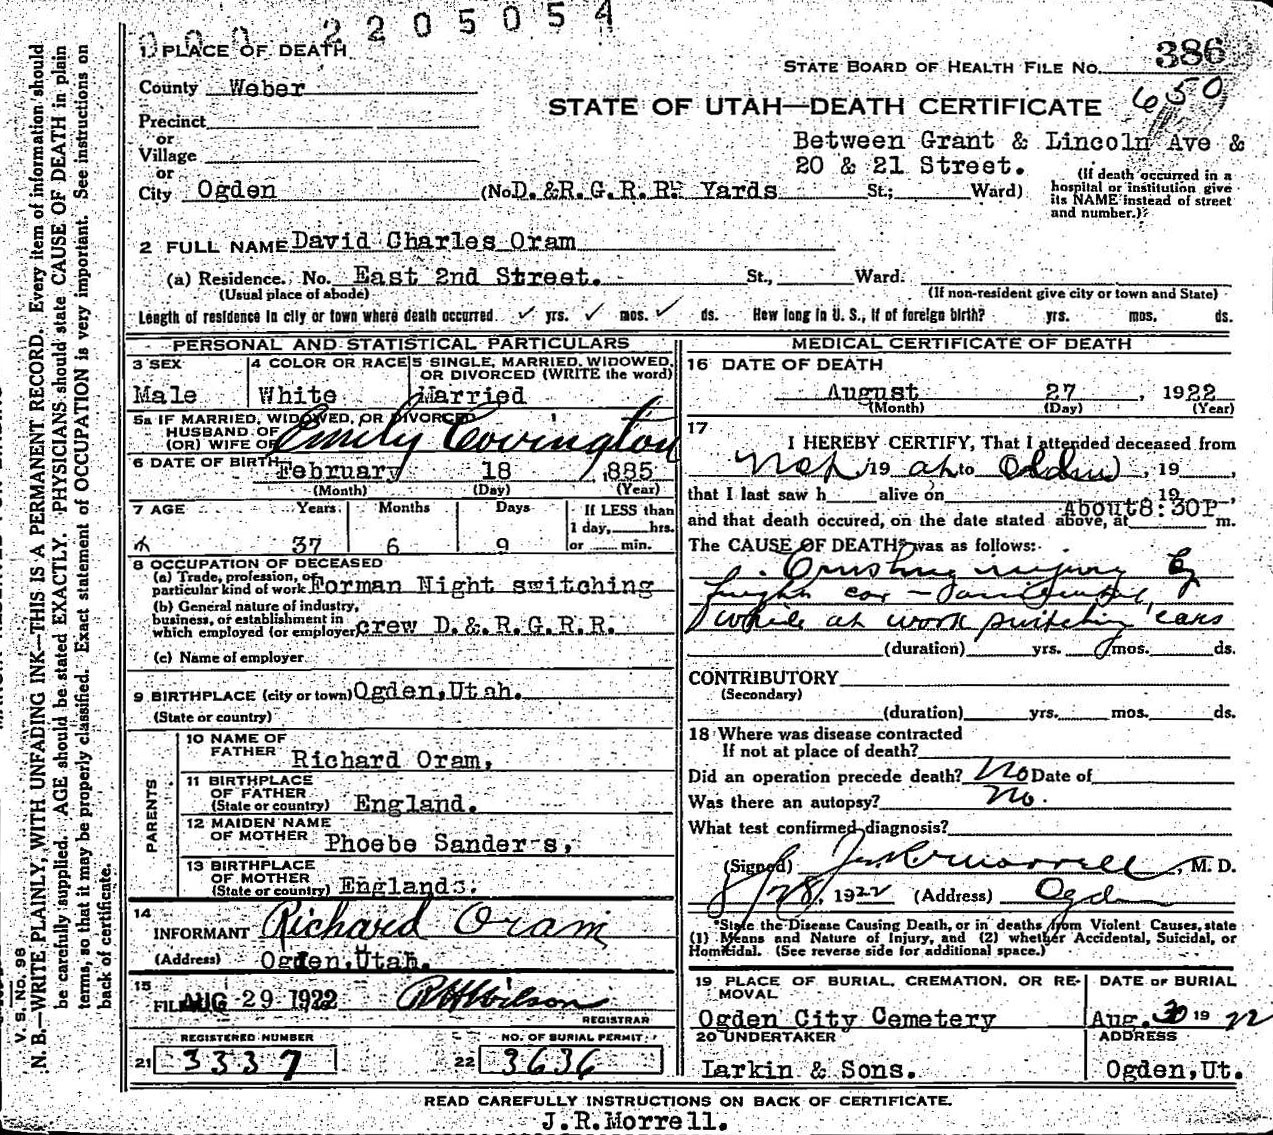 000 2205054
1. PLACE OF DEATH
County Weber
Precinct
or
Village
or
City Ogden (No. D.&R.G.R.R. Yards St.; Ward)
STATE BOARD OF HEALTH FILE No. 386
650
STATE OF UTAH—DEATH CERTIFICATE
Between Grant & Lincoln Ave &
20 & 21 Street.
(If death occurred in a
hospital or institution give
its NAME instead of street
and number.)
2 FULL NAME David Charles Oram
(a) Residence. No. East 2nd Street. St., Ward.
(Usual place of abode) (If non-resident give city or town and State)
Length of residence in city or town where death occurred ✓ yrs. ✓ mos. ✓ ds. How long in U. S., if of foreign birth? yrs. mos. ds.
PERSONAL AND STATISTICAL PARTICULARS
3 SEX
Male
4 COLOR OR RACE
White
5 SINGLE, MARRIED, WIDOWED,
OR DIVORCED (WRITE the word)
Married
5a IF MARRIED, WIDOWED, OR DIVORCED
HUSBAND OF
(OR) WIFE OF Emily Covington
6 DATE OF BIRTH February 18 ,885
(Month) (Day) (Year)
7 AGE Years Months Days If LESS than
1 day, hrs.
or min.
37 6 9
8 OCCUPATION OF DECEASED
(a) Trade, profession, or
particular kind of work Forman Night switching
(b) General nature of industry,
business, or establishment in
which employed (or employer) crew D.&.R.G.R.R.
(c) Name of employer
9 BIRTHPLACE (city or town) Ogden,Utah.
(State or country)
PARENTS
10 NAME OF
FATHER Richard Oram,
11 BIRTHPLACE
OF FATHER
(State or country) England.
12 MAIDEN NAME
OF MOTHER Phoebe Sanders,
13 BIRTHPLACE
OF MOTHER
(State or country) England.
14
INFORMANT Richard Oram
(Address) Ogden,Utah.
15
FILED AUG 29 1922
REGISTRAR
REGISTERED NUMBER
21 3337
NO. OF BURIAL PERMIT
22 3636
MEDICAL CERTIFICATE OF DEATH
16 DATE OF DEATH
August 27 , 1922
(Month) (Day) (Year)
17
I HEREBY CERTIFY, That I attended deceased from
Not 19 at to , 19
that I last saw h alive on 19
and that death occured, on the date stated above, at About 8:30P m.
The CAUSE OF DEATH* was as follows:
Crushing injury by
freight car — accidental,
while at work switching cars
(duration) yrs. mos. ds.
CONTRIBUTORY
(Secondary)
(duration) yrs. mos. ds.
18 Where was disease contracted
If not at place of death?
Did an operation precede death? No Date of
Was there an autopsy? No.
What test confirmed diagnosis?
(Signed) Morrell, M. D.
8/28, 1922 (Address) Ogden
*State the Disease Causing Death, or in deaths from Violent Causes, state
(1) Means and Nature of Injury, and (2) whether Accidental, Suicidal, or
Homicidal. (See reverse side for additional space.)
19 PLACE OF BURIAL, CREMATION, OR RE-
MOVAL
Ogden City Cemetery
DATE OF BURIAL
Aug. 30 19 22
20 UNDERTAKER
Larkin & Sons.
ADDRESS
Ogden,Ut.
READ CAREFULLY INSTRUCTIONS ON BACK OF CERTIFICATE.
J.R.Morrell.
V. S. No. 98
N. B.—WRITE PLAINLY, WITH UNFADING INK—THIS IS A PERMANENT RECORD. Every item of information should
be carefully supplied. AGE should be stated EXACTLY. PHYSICIANS should state CAUSE OF DEATH in plain
terms, so that it may be properly classified. Exact statement of OCCUPATION is very important. See instructions on
back of certificate.